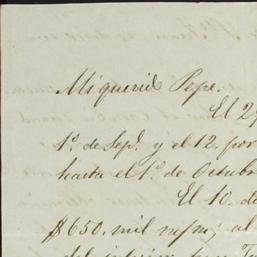 Mi querido Pepe.
El 2
1º de Sepe. y el 12. por
hasta el 1º de Octub
El 10. d
$650. mil